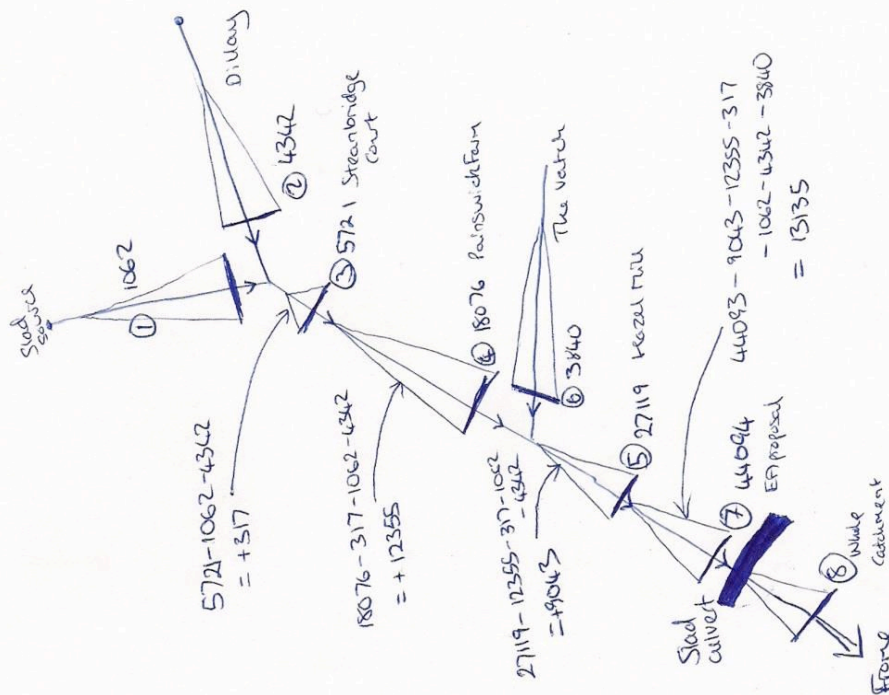 Slad
source
① 1062
Dillay
② 4342
③ 5721 Steanbridge
Court
5721-1062-4342
= +317
④ 18076 Painswick Farm
18076-317-1062-4342
= +12355
The Vatch
⑥ 3840
27119-12355-317-1062
-4342
=+9043
⑤ 27119 Hazel Mill
44093-9043-12355-317
-1062-4342-3840
= 13135
⑦ 44094
EA proposal
Slad
culvert
⑧ Whole
Catchment
Frome